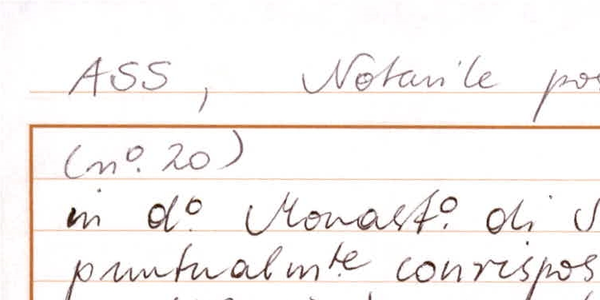 ASS, Notarile pos
(nº. 20)
in dº. Monastº. di S
puntualmte corrispos